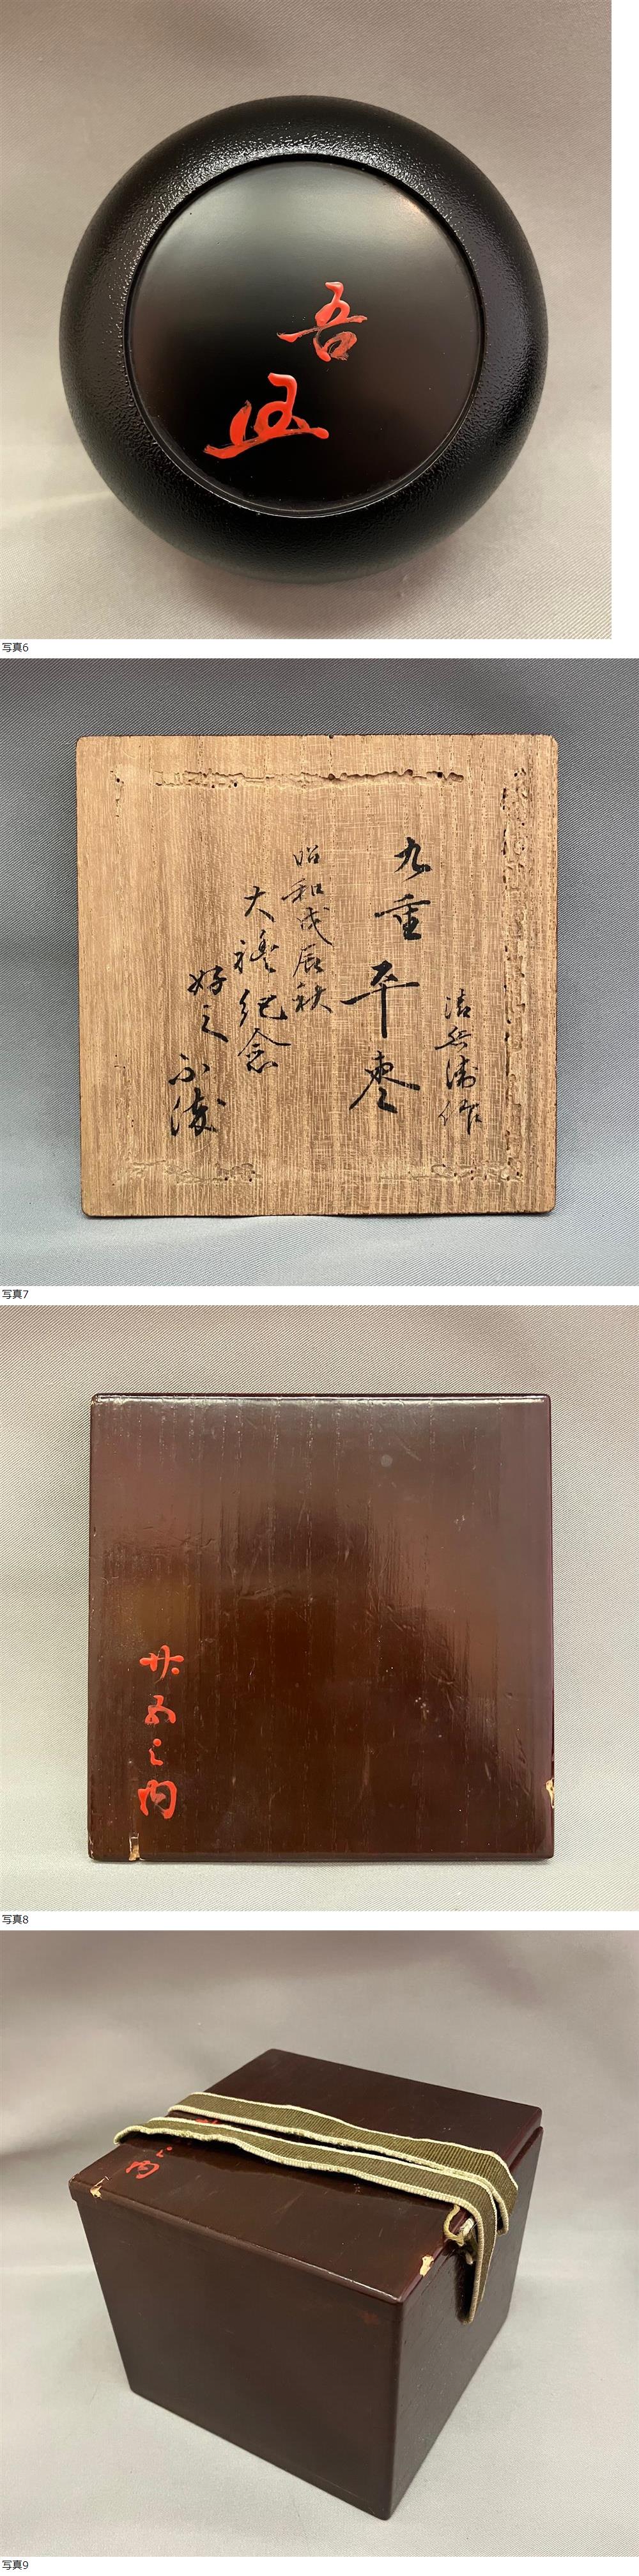 吾
写真6
清兵衛作
九重平棗
昭和戊辰秋
大禮紀念
好之
写真7
廿五之内
写真8
之内
写真9